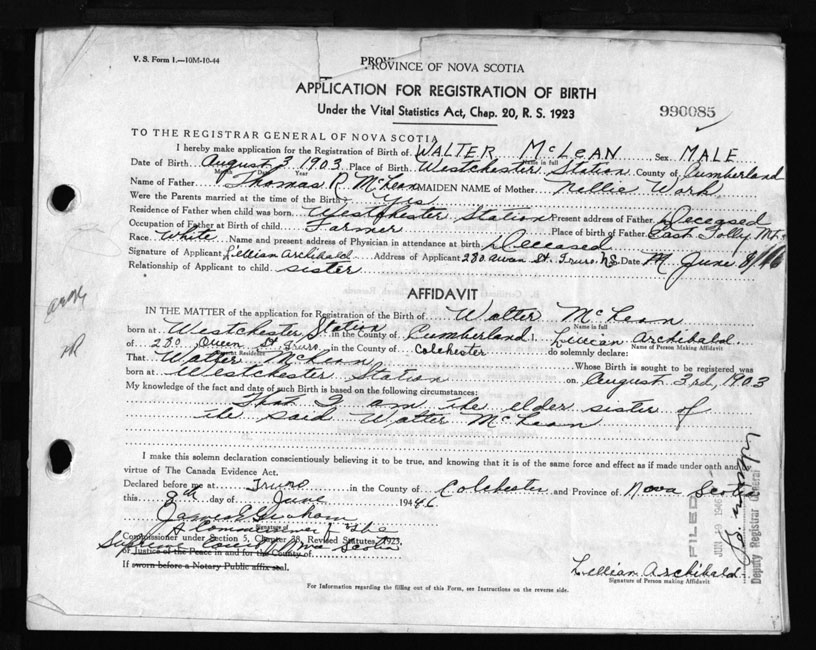 V. S. Form 1.—10M-10-44
PROVINCE OF NOVA SCOTIA
APPLICATION FOR REGISTRATION OF BIRTH
Under the Vital Statistics Act, Chap. 20, R. S. 1923
990085
TO THE REGISTRAR GENERAL OF NOVA SCOTIA
I hereby make application for the Registration of Birth of WALTER McLEAN Sex MALE
Name in full
Date of Birth August 3 1903 Place of Birth Westchester Station County of Cumberland
Month Day Year
Name of Father Thomas R. McLean MAIDEN NAME of Mother Nellie Work
Were the Parents married at the time of the Birth? Yes
Residence of Father when child was born Westchester Station Present address of Father Deceased
Occupation of Father at Birth of child Farmer Place of birth of Father East Folly Mt.
Race White Name and present address of Physician in attendance at birth Deceased
Signature of Applicant Lillian Archibald Address of Applicant 280 Queen St. Truro N.S. Date June 8/46
Relationship of Applicant to child sister
AFFIDAVIT
IN THE MATTER of the application for Registration of the Birth of Walter McLean
Name in full
born at Westchester Station in the County of Cumberland I, Lillian Archibald
Name of Person Making Affidavit
of 280 Queen St Truro in the County of Colchester do solemnly declare:
Residence
That Walter McLean Whose Birth is sought to be registered was
born at Westchester Station on August 3rd, 1903
My knowledge of the fact and date of such Birth is based on the following circumstances:
That I am the elder sister of
the said Walter McLean
I make this solemn declaration conscientiously believing it to be true, and knowing that it is of the same force and effect as if made under oath and by
virtue of The Canada Evidence Act.
Declared before me at Truro in the County of Colchester and Province of Nova Scotia
this 8th day of June 1946
James E. Graham
Signature of
A Commissioner of the
Commissioner under Section 5, Chapter 38, Revised Statutes, 1923,
Supreme Court Nova Scotia
or Justice of the Peace in and for the County of
If sworn before a Notary Public affix seal.
Lillian Archibald
Signature of Person making Affidavit
For Information regarding the filling out of this Form, see Instructions on the reverse side.
FILED
JUN 19 1946
Deputy Registrar General